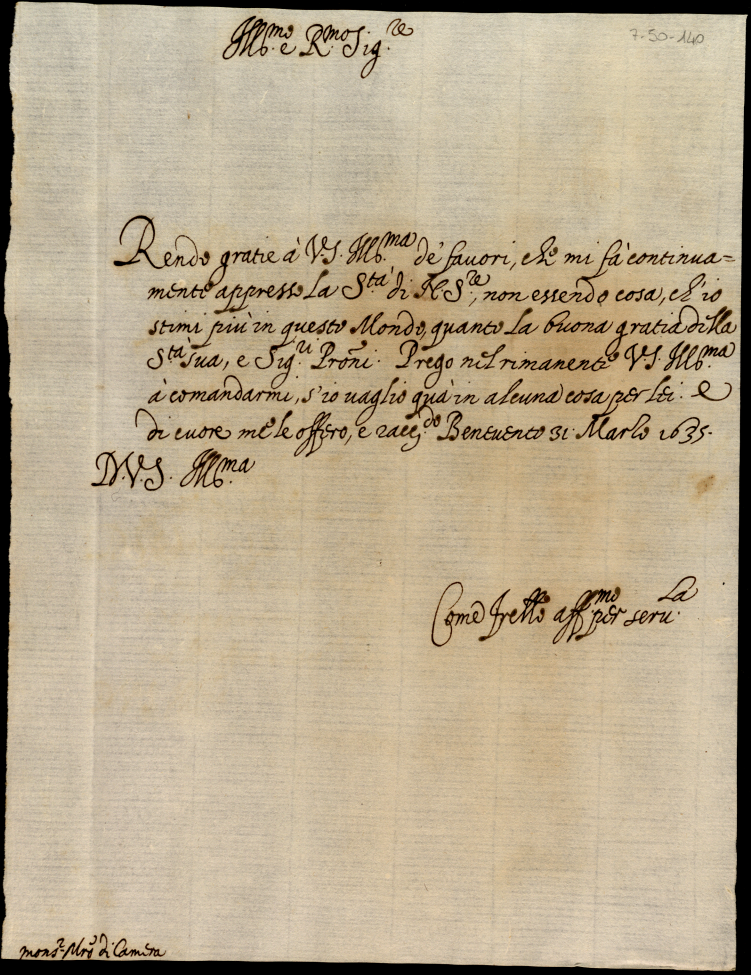 7-50-140
Ill.mo e R.mo Sig.re
Rendo gratie à V.S. Ill.ma de' fauori, che mi fà continua=
mente appresso la S.tà di N. S.re, non essendo cosa, ch'io
stimi più in questo Mondo, quanto la buona gratia della
S.tà sua, e Sig.ri Proñi. Prego nel rimanente V.S. Ill.ma
à comandarmi, s'io uaglio quà in alcuna cosa per lei. E
di cuore me le offero, e racc.do Beneuento 31. Marzo 1635.
D.V.S. Ill.ma
Come frello aff.mo per seru.la
mons.r Mro di Camera